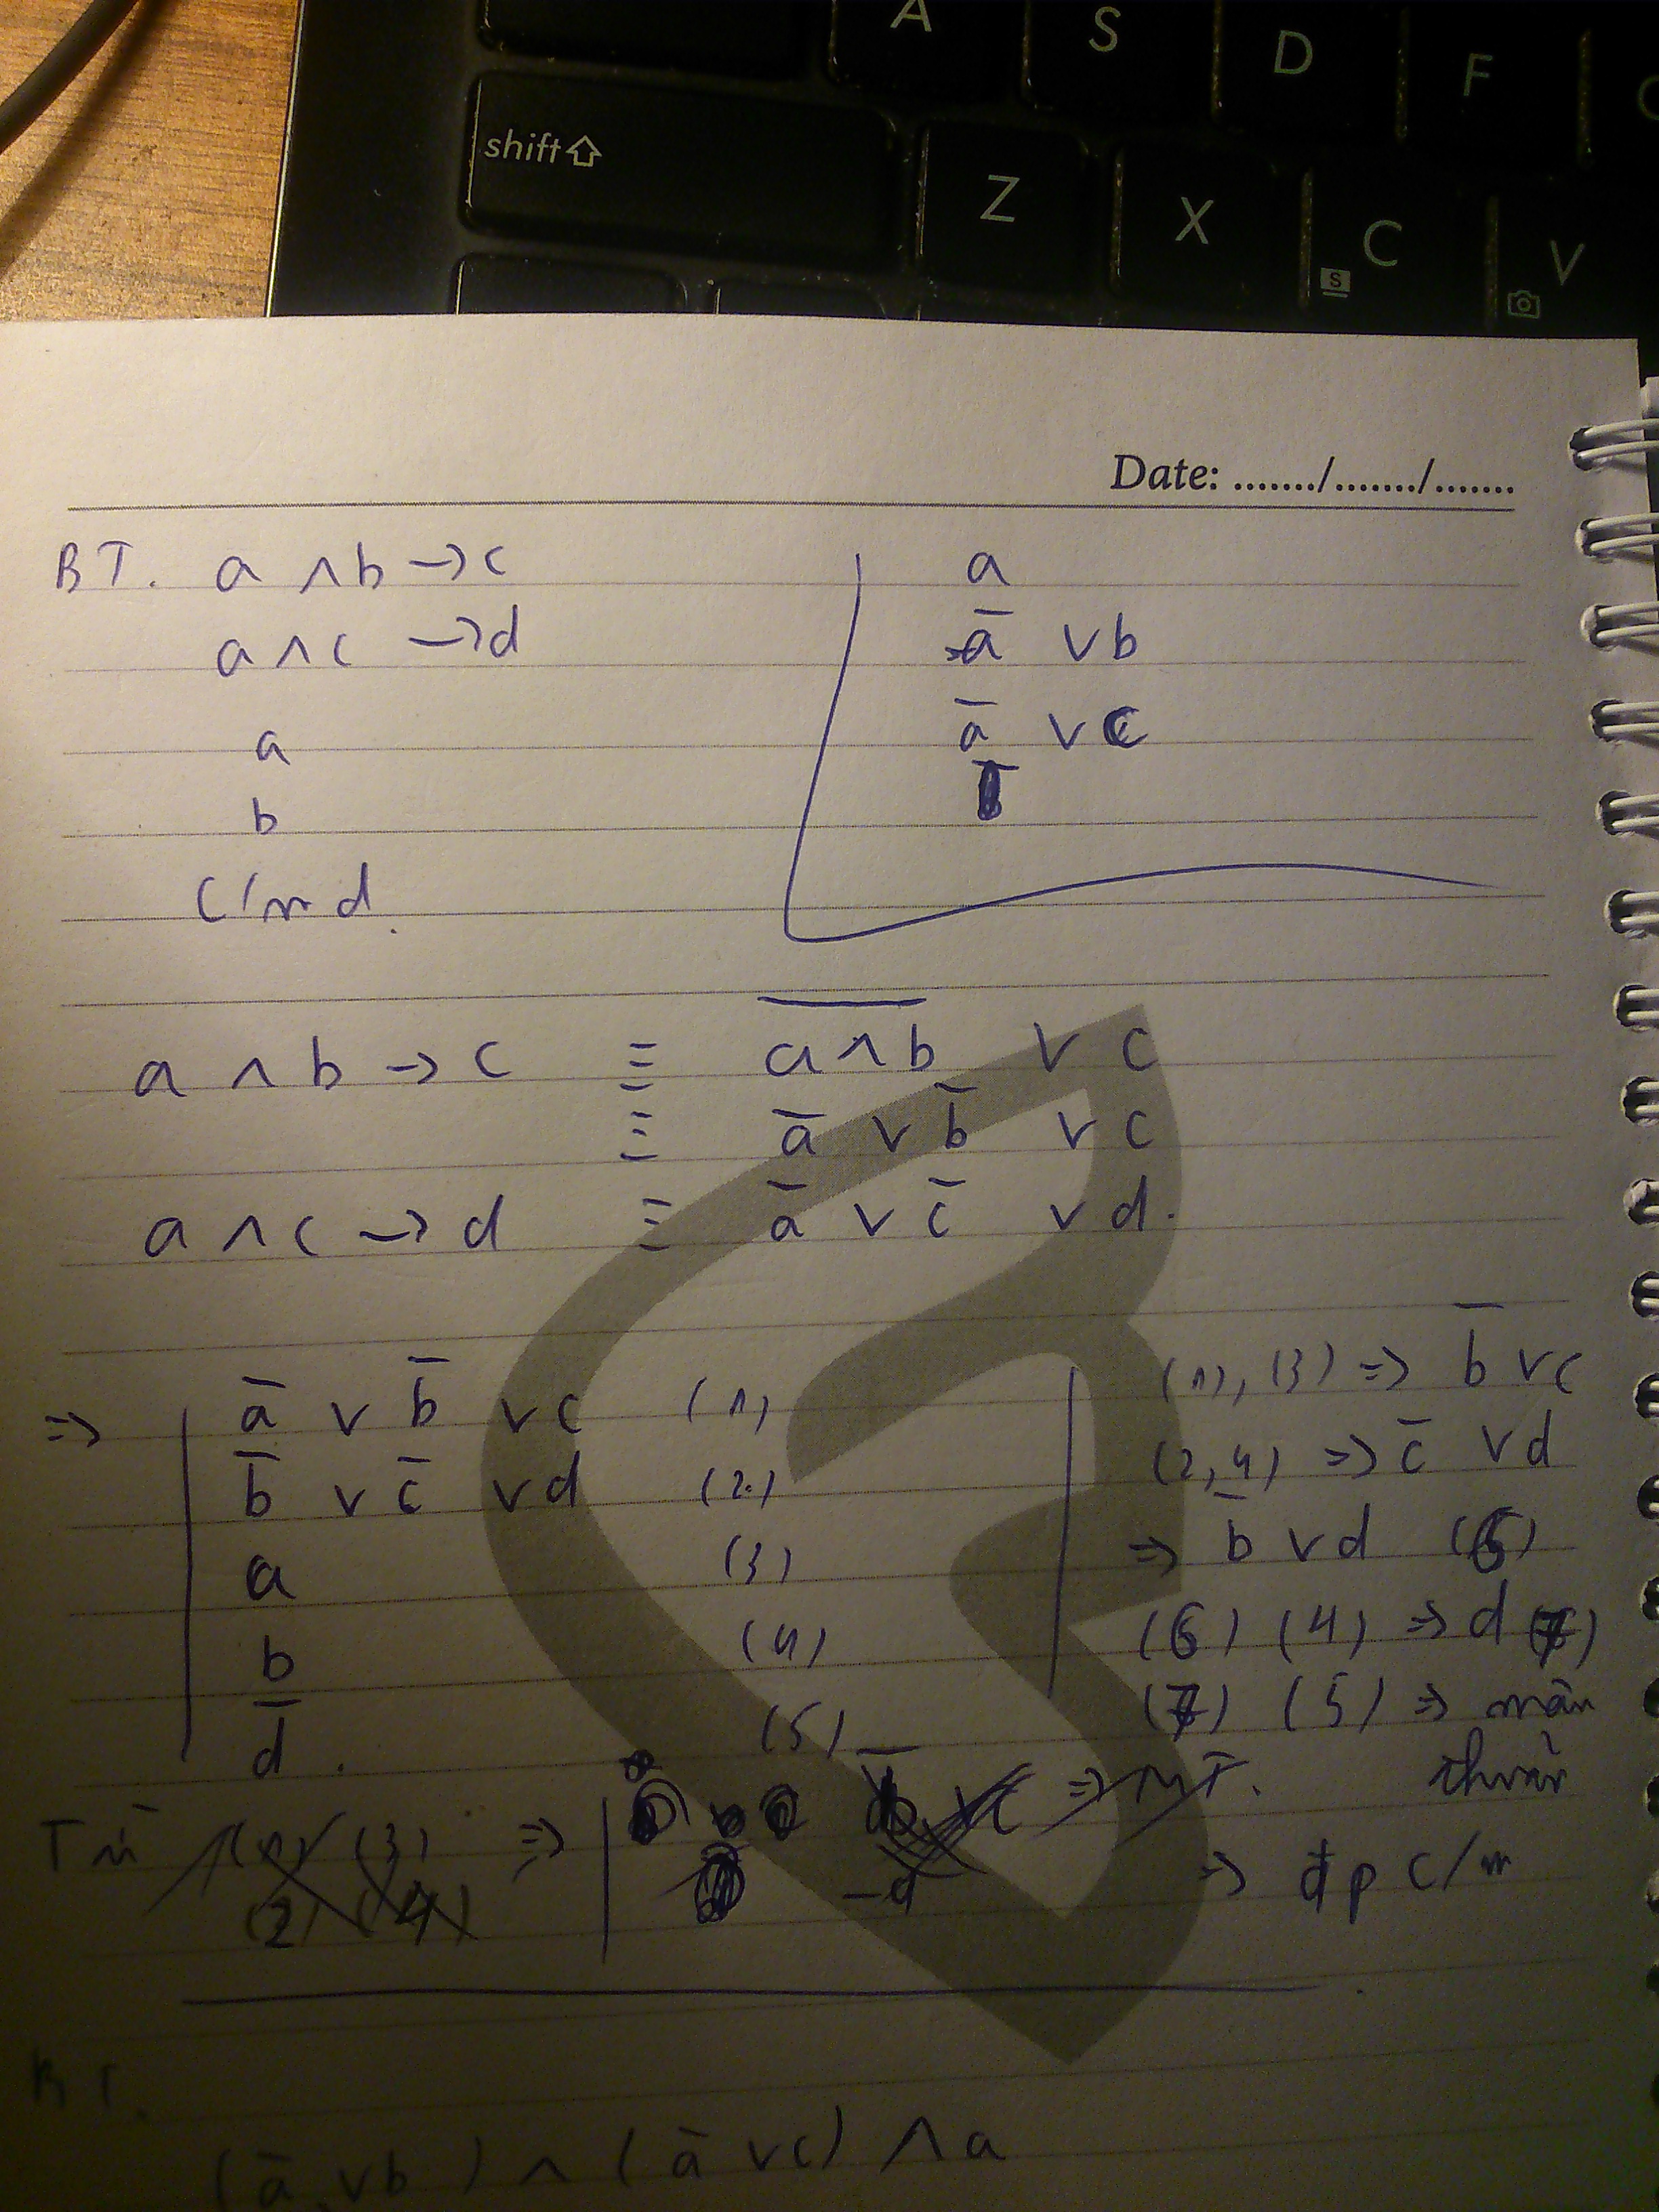 A S D F
shift Z X C V
S
Date: ......./......./.......
BT. a ∧ b → c
a ∧ c → d
a
b
C/m d.
a
a̅ ∨ b
a̅ ∨ c
a ∧ b → c ≡ \overline{a ∧ b} ∨ c
≡ a̅ ∨ b̅ ∨ c
a ∧ c → d ≡ a̅ ∨ c̅ ∨ d.
⇒ a̅ ∨ b̅ ∨ c (1)
b̅ ∨ c̅ ∨ d (2)
a (3)
b (4)
d̅. (5)
(1), (3) ⇒ b̅ ∨ c
(2, 4) ⇒ c̅ ∨ d
⇒ b̅ ∨ d (6)
(6) (4) ⇒ d (7)
(7) (5) ⇒ mâu
thuẫn
Từ (1) (3) ⇒ ⇒ MT.
(2) (4) d
⇒ đpc/m
BT.
(a̅ ∨ b) ∧ (a̅ ∨ c) ∧ a